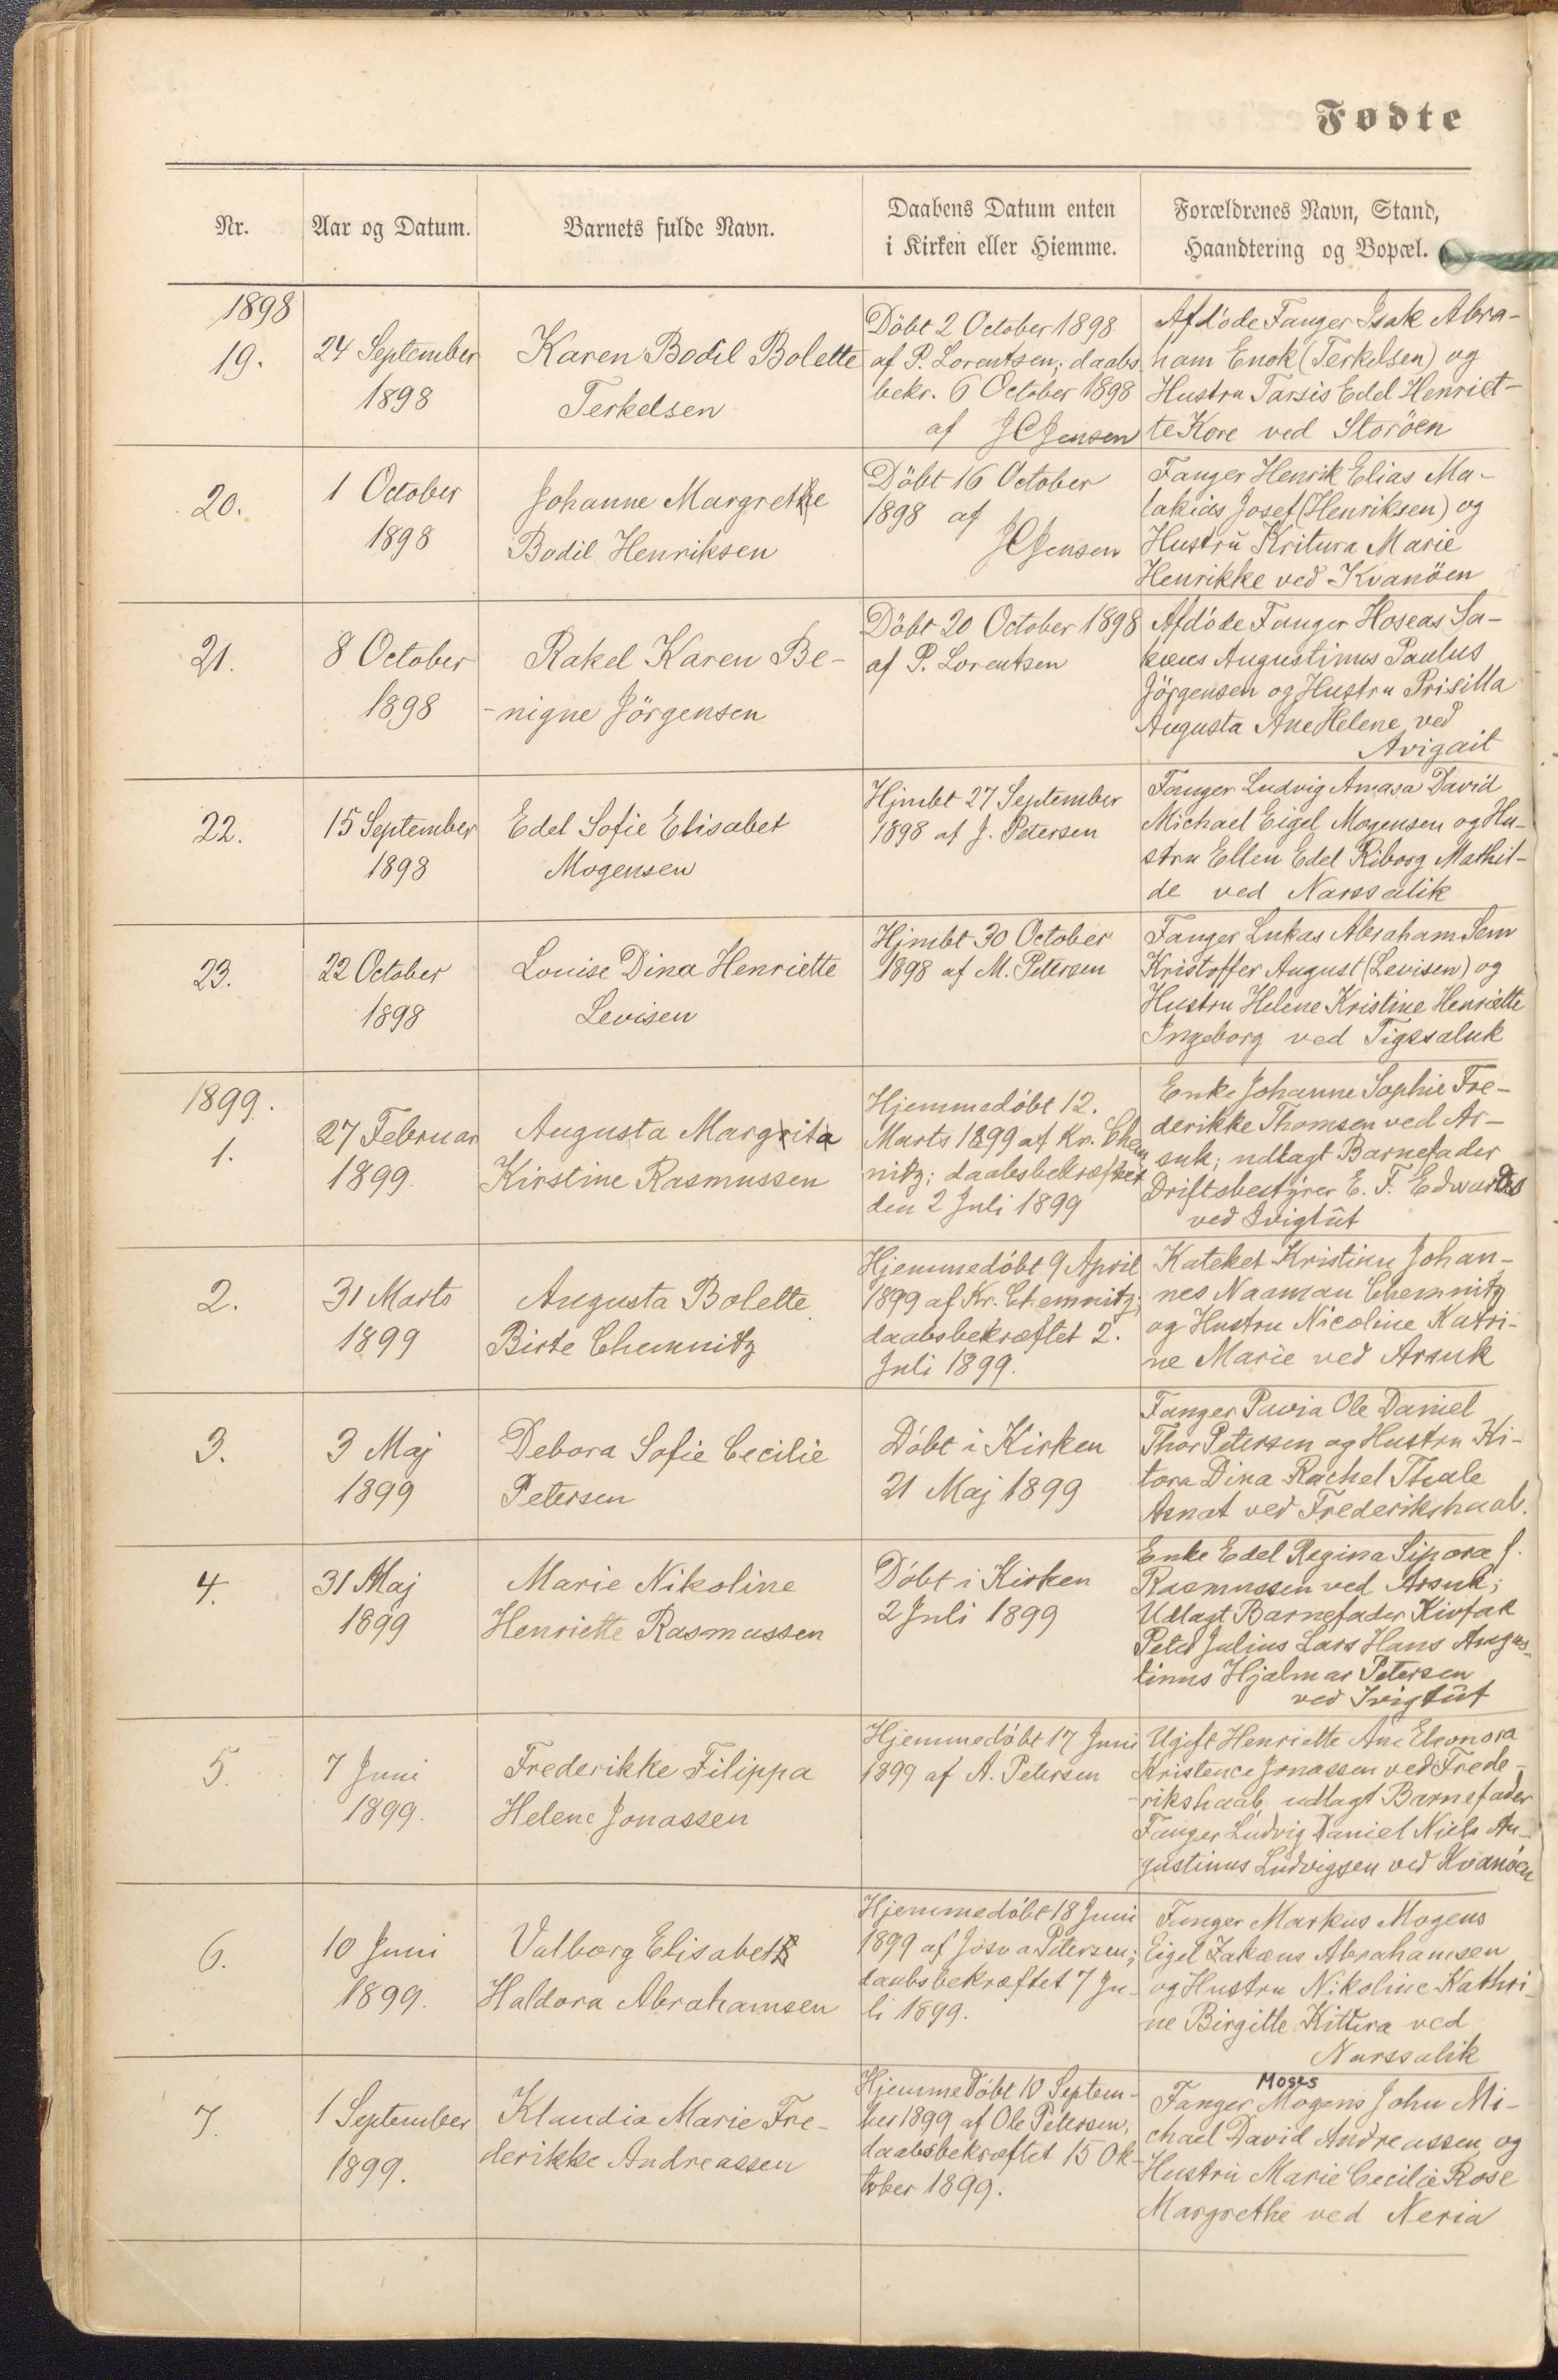 Fødte
Nr.
Aar og Datum.
Barnets fulde Navn.
Daabens Datum enten
i Kirken eller Hiemme.
Forældrenes Navn, Stand,
Haandtering og Bopæl.
1898
19.
24 September
1898
Karen Bodil Bolette
Terkelsen
Döbt 2 October 1898
af P. Lorentsen; daabs
bekr. 6 October 1898
af JCJensen
Afdöde Fanger Isak Abra-
ham Enok (Terkelsen) og
Hustru Tarsis Edel Henriet-
te Kore ved Storöen
20.
1 October
1898
Johanne Margrethe
Bodil Henriksen
Döbt 16 October
1898 af
JCJensen
Fanger Henrik Elias Ma-
lakias Josef (Henriksen) og
Hustru Kritura Marie
Henrikke ved Kvanöen
21.
8 October
1898
Rakel Karen Be-
-nigne Jörgensen
Döbt 20 October 1898
af P. Lorentsen
Afdöde Fanger Hoseas Sa-
kæus Augustinus Paulus
Jörgensen og Hustru Prisilla
Augusta Ane Helene ved
Avigait
22.
15 September
1898
Edel Sofie Elisabet
Mogensen
Hjmbt 27 September
1898 af J. Petersen
Fanger Ludvig Amasa David
Michael Eigel Mogensen og Hu-
stru Ellen Edel Riborg Mathil-
de ved Narssalik
23.
22 October
1898
Louise Dina Henriette
Levisen
Hjmbt 30 October
1898 af M. Petersen
Fanger Lukas Abraham Sem
Kristoffer August (Levisen) og
Hustru Helene Kristine Henriette
Ingeborg ved Tigssaluk
1899.
1.
27 Februar
1899
Augusta Margrita
Kirstine Rasmussen
Hjemmedöbt 12.
Marts 1899 af Kr. Chem
nitz; daabsbekræftet
den 2 Juli 1899
Enke Johanne Sophie Fre-
derikke Thomsen ved Ar-
suk; udlagt Barnefader
Driftsbestyrer E. F. Edwards
ved Ivigtût
2.
31 Marts
1899
Augusta Bolette
Birte Chemnitz
Hjemmedöbt 9 April
1899 af Kr. Chemnitz;
daabsbekræftet 2.
Juli 1899.
Kateket Kristian Johan-
nes Naaman Chemnitz
og Hustru Nicoline Katri-
ne Marie ved Arsuk
3.
3 Maj
1899
Debora Sofie Cecilie
Petersen
Döbt i Kirken
21 Maj 1899
Fanger Pavia Ole Daniel
Thor Petersen og Hustru Ki-
tora Dina Rachel Thale
Asnat ved Frederikshaab.
4.
31 Maj
1899
Marie Nikoline
Henriette Rasmussen
Döbt i Kirken
2 Juli 1899
Enke Edel Regina Sipora f.
Rasmussen ved Arsuk;
Udlagt Barnefader Kivfak
Peter Julius Lars Hans Augus-
tinus Hjalmar Petersen
ved Ivigtût
5.
7 Juni
1899.
Frederikke Filippa
Helene Jonassen
Hjemmedöbt 17 Juni
1899 af A. Petersen
Ugift Henriette Ane Eleonora
Kristence Jonassen ved Frede-
-rikshaab, udlagt Barnefader
Fanger Ludvig Daniel Niels Au-
gustinus Ludvigsen ved Kvanöen
6.
10 Juni
1899.
Valborg Elisabeth
Haldora Abrahamsen
Hjemmedöbt 18 Juni
1899 af Josva Petersen;
daabsbekræftet 7 Ju-
li 1899.
Fanger Markus Mogens
Eigel Zakæus Abrahamsen
og Hustru Nikoline Kathri-
ne Birgitte Kittura ved
Narssalik
7.
1 September
1899.
Klaudia Marie Fre-
derikke Andreassen
Hjemmedöbt 10 Septem-
ber 1899 af Ole Petersen,
daabsbekræftet 15 Ok-
tober 1899.
Moses
Fanger Mogens John Mi-
chael David Andreassen og
Hustru Marie Cecilie Rose
Margrethe ved Neria